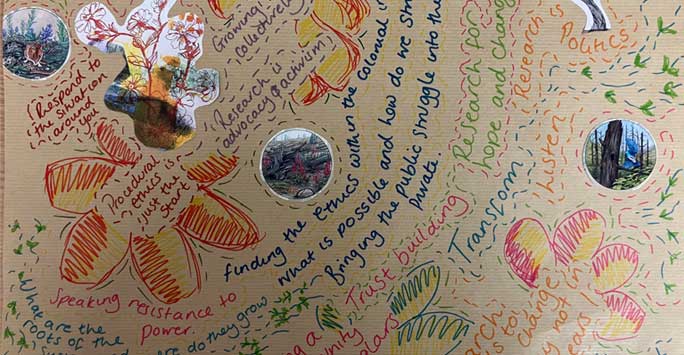 Respond to
the situation
around
you
Growing
collectively
Research is
advocacy & activism
Procedural
ethics is
just the
start
finding the ethics within the colonial
What is possible and how do we
Bringing the public struggle into the
Private
Research for
hope and
Research is
Politics
Listen
Transform
Trust building
Speaking resistance to
power.
What are the
roots of the
are do they grow
change
not in